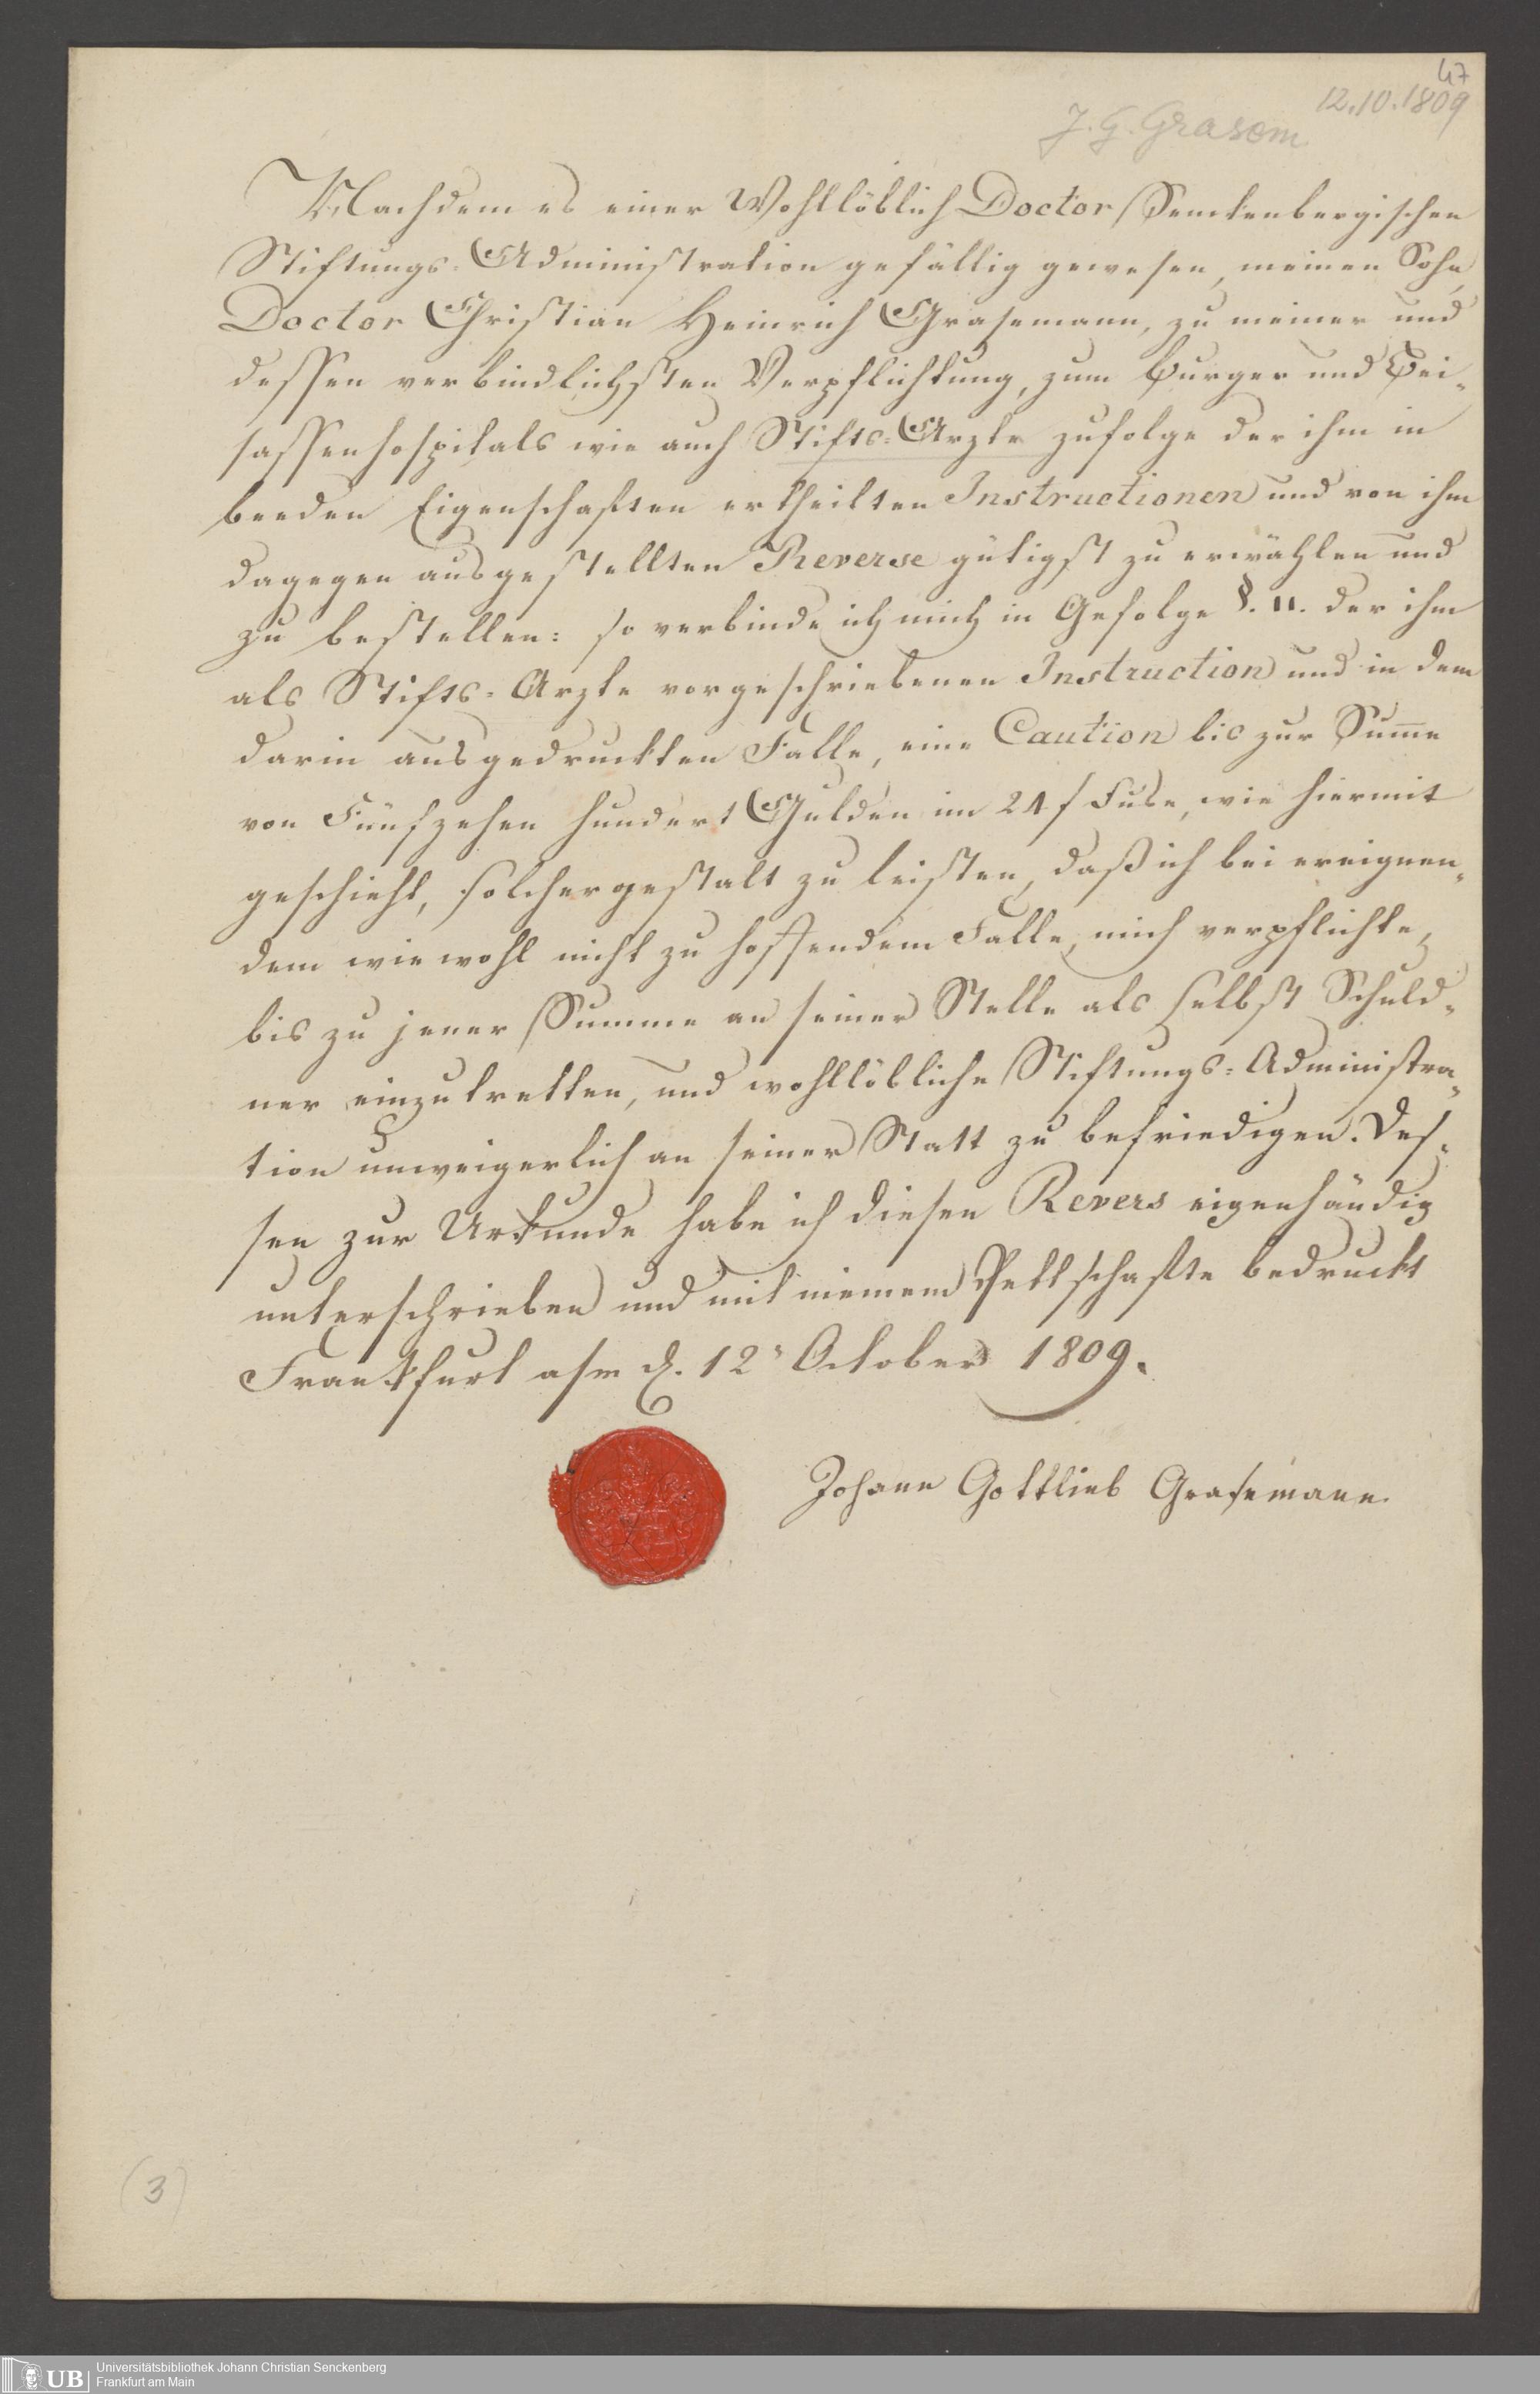 47
12.10.1809
J. G. Grasem
Nachdem es einer Wohllöblich Doctor Senckenbergischen
Stiftungs-Administration gefällig gewesen, meinen Sohn,
Doctor Christian Heinrich Grasemann, zu meiner und
dessen verbindlichsten Verpflichtung, zum Burger und Bei-
sassenhospitals wie auch Stifts-Arzte zufolge der ihm in
beeden Eigenschaften ertheilten Instructionen und von ihm
dagegen ausgestellten Reverse gütigst zu erwählen und
zu bestellen: so verbinde ich mich in Gefolge §. 11. der ihm
als Stifts-Arzte vorgeschriebenen Instruction und in dem
darin ausgedruckten Falle, eine Caution bis zur Sum̅e
von Fünfzehen hundert Gulden im 24 f Fuse, wie hiermit
geschieht, solchergestalt zu leisten, daß ich bei ereignen-
dem wiewohl nicht zu hoffendem Falle, mich verpflichte,
bis zu jener Summe an seiner Stelle als selbst Schuld-
ner einzutretten, und wohllöbliche Stiftungs-Administra-
tion unweigerlich an seiner Statt zu befriedigen. Des-
sen zur Urkunde habe ich diesen Revers eigenhändig
unterschrieben und mit miemem Pettschafte bedruckt
Frankfurt a/m d. 12s October 1809.
Johann Gottlieb Grasemann
(3)
UB
Universitätsbibliothek Johann Christian Senckenberg
Frankfurt am Main